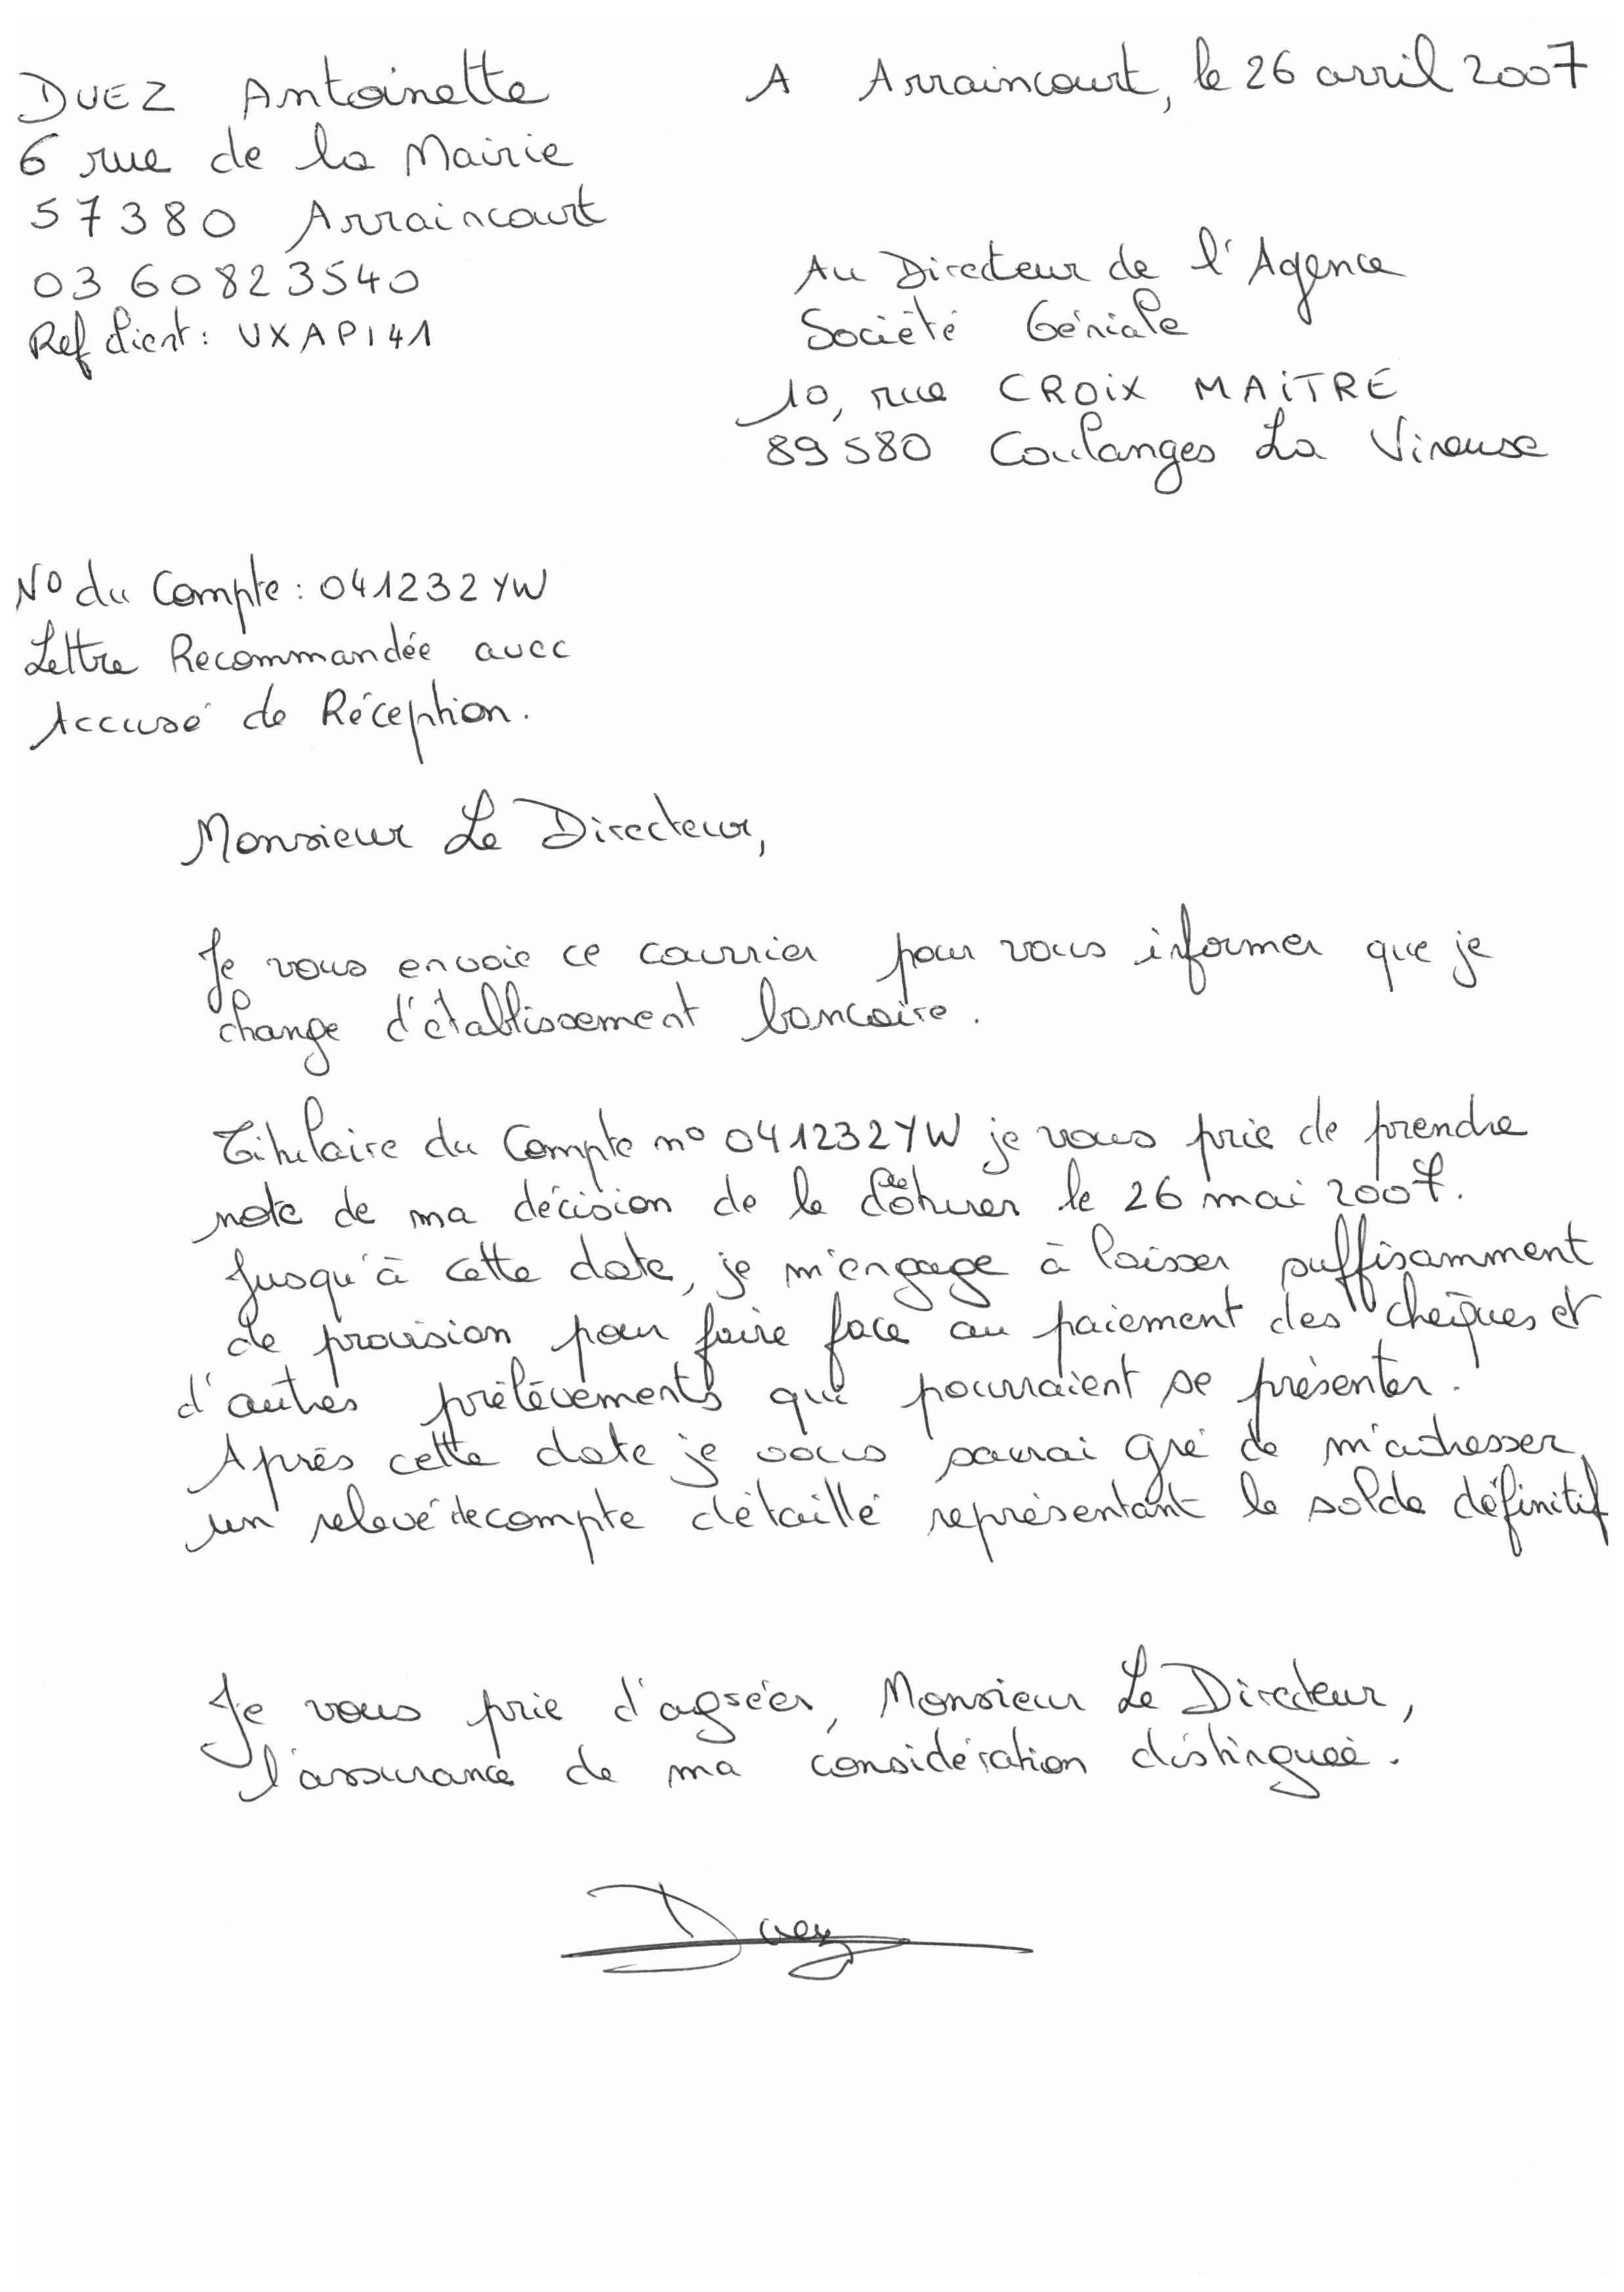 DUEZ Antoinette
6 rue de la Mairie
57380 Arraincourt
03 60823540
Ref client : UXAPI41
A Arraincourt, le 26 avril 2007
Au Directeur de l'Agence
Société Géniale
10, rue CROIX MAITRE
89580 Coulanges La Vineuse
No du Compte : 041232YW
Lettre Recommandée avec
Accusé de Réception.
Monsieur Le Directeur,
Je vous envoie ce courrier pour vous informer que je
change d'établissement bancaire.
Titulaire du Compte no 041232YW je vous prie de prendre
note de ma décision de le clôturer le 26 mai 2007.
Jusqu'à cette date, je m'engage à laisser suffisamment
de provision pour faire face au paiement des chèques et
d'autres prélèvements qui pourraient se présenter.
Après cette date je vous saurai gré de m'adresser
un relevé de compte détaillé représentant le solde définitif
Je vous prie d'agréer, Monsieur Le Directeur,
l'assurance de ma considération distinguée.
Duez